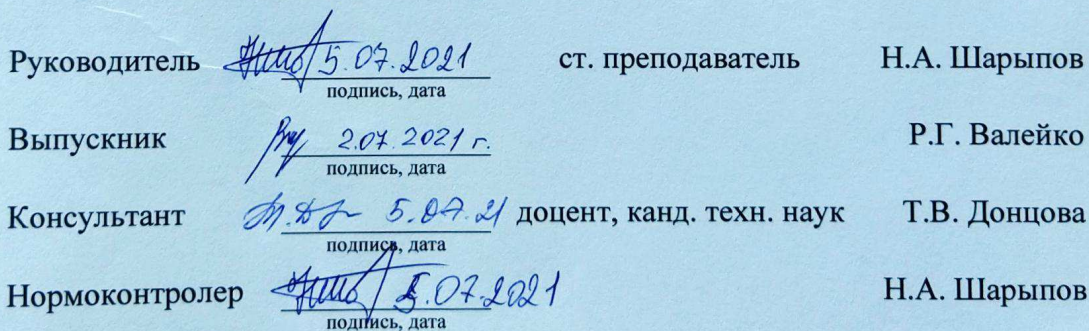 Руководитель 5.07.2021 ст. преподаватель Н.А. Шарыпов
подпись, дата
Выпускник 2.07.2021 г. Р.Г. Валейко
подпись, дата
Консультант 5.07.21 доцент, канд. техн. наук Т.В. Донцова
подпись, дата
Нормоконтролер 5.07.2021 Н.А. Шарыпов
подпись, дата